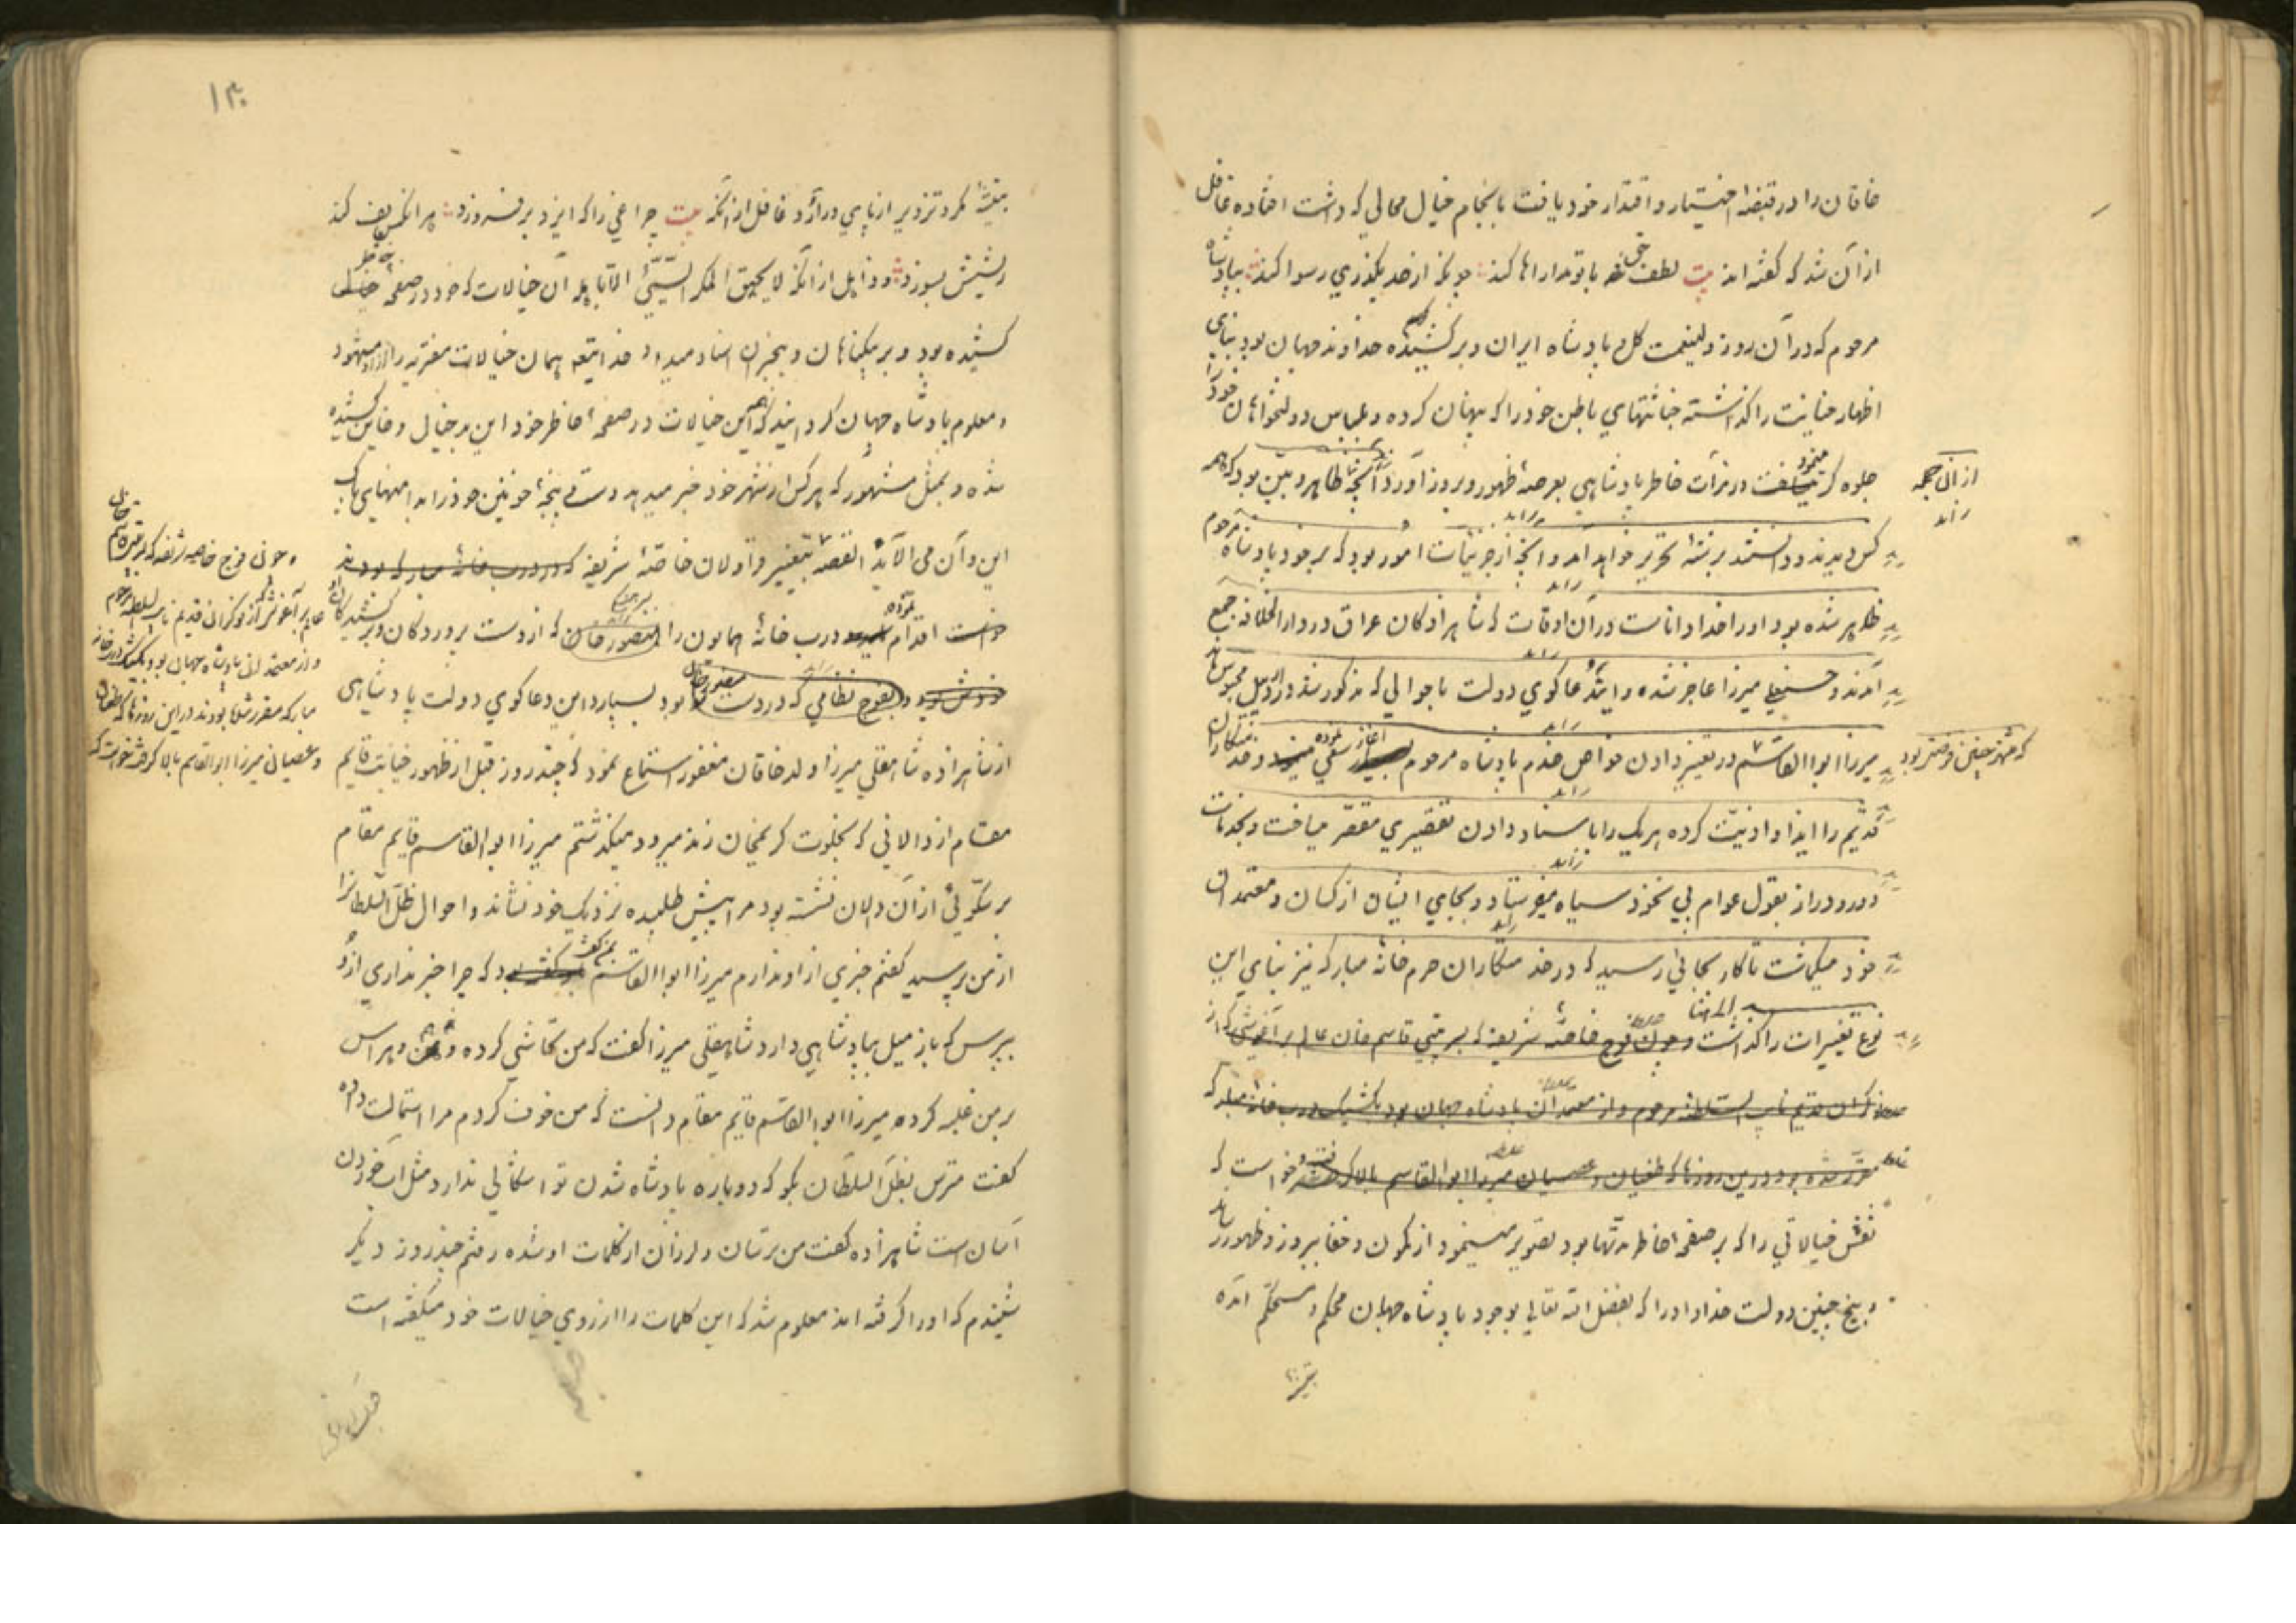 خاقان را در قبضهٔ اختیار و اقتدار خود یافت بانجام خیال محالی که داشت افتاده غافل
از آن شد که گفته اند بیت لطف حق با تو مداراها کند چونکه از حد بگذری رسوا کند بپادشاه
مرحوم که در آن روز ولینعمت کل و پادشاه ایران و برکشیده خداوند جهان بود بنای
اظهار خیانت را گذاشته خباثتهای باطن خود را که پنهان کرده و بلباس دولتخواهان خود را
جلوه گر مینمود در مرآت خاطر پادشاهی بعرصهٔ ظهور و بروز آورد آنچه ظاهر و بیّن بود که همه
از آن جمله
زاید
کس دیدند و دانستند برشتهٔ تحریر خواهد آمد و آنچه از جزئیات امور بود که بر خود پادشاه مرحوم
زاید
ظاهر شده بود او را خدا داناست در آن اوقات که شاهزادکان عراق در دار الخلافه جمع
زاید
آمدند و میرزا عاجز شده و این دعاکوی دولت با جوالی که مذکور شد در اردبیل محبوس ماند
زاید
میرزا ابوالقاسم در تغییر دادن خواص خدم پادشاه مرحوم آغاز سعی نموده و خدمتکاران
زاید
قدیم را ایذا و اذیّت کرده هر یک را با سناد دادن تقصیری مقصّر میاخت و بخدمات
زاید
دور و دراز بقول عوام پی نخود سیاه میفرستاد و بجای ایشان از کسان و معتمدان
زاید
خود میکماشت تا کار بجائی رسید که در خدمتکاران حرم خانهٔ مبارکه نیز بنای این
نوع تغییرات را گذاشت و چون فوج خاصهٔ شریفه که بسرتیپی قاسم خان عالم برآغوشی که از
نوکران قدیم نایب السلطنه مرحوم و از معتمدان پادشاه جهان بود بکشیک درب خانهٔ مبارکه
مقرّر شده بود درین روزها که طغیان و عصیان میرزا ابوالقاسم بالا کرفت و خواست که
نقش خیالاتی را که بر صفحهٔ خاطر مدّتها بود تصویر مینمود از کمون و خفا ببروز و ظهور رساند
و بیخ چنین دولت خداداد را که بفضل الله تعالی بوجود پادشاه جهان محکم و مستحکم آمده
بتیشهٔ
۱۳۰
بتیشهٔ مکر و تزویر از پای در آرد غافل از آنکه بیت چراغی را که ایزد بر فروزد هر آنکس پف کند
ریشش بسوزد و ذاهل از آنکه لا یحیق المکر السّیّئ الّا باهله آن خیالات که خود در صفحهٔ خاطر
کشیده بود و بر بیگناهان و بیخبران اسناد میداد خدا بتعه همان خیالات مفتریه را از او مشهود
و معلوم پادشاه جهان کردانید که همین خیالات در صفحهٔ خاطر خود این بدخیال و خاین کشیده
شده و بمثل مشهور که هر کس از شهر خود خبر میدهد دست پنجهٔ خونین خود را بدامنهای پاک
این و آن می آلاید القصه بتغییر قراولان خاصّهٔ شریفه که در درب خانهٔ مبارکه بودند
اقدام نموده درب خانهٔ همایون را بمنصور خان که از دست پروردکان و برکشیدکان او
بود و بفوج نظامی که در دست منصور خان بود بسپارد این دعاکوی دولت پادشاهی
از شاهزاده شاهقلی میرزا ولد خاقان مغفور استماع نمود که چند روز قبل از ظهور خیانت قایم
مقام از دالانی که بخلوت کریمخان زند میرود میکذشتم میرزا ابوالقاسم قایم مقام
بر سکّوئی از آن دالان نشسته بود مرا پیش طلبیده نزدیک خود نشاند و احوال ظلّ السّلطانرا
از من پرسید کفتم خبری از او ندارم میرزا ابوالقاسم بمن کفت که چرا خبر نداری از او
بپرس که باز میل بپادشاهی دارد شاهقلی میرزا کفت که من تحاشی کرده و هراس
بر من غلبه کرده میرزا ابوالقاسم قایم مقام دانست که من خوف کردم مرا استمالت داده
کفت مترس بظلّ السلطان بکو که دوباره پادشاه شدن تو اشکالی ندارد مثل آب خوردن
آسان است شاهزاده کفت من ترسان و لرزان از کلمات او شده رفتم چند روز دیکر
شنیدم که او را کرفته اند معلوم شد که این کلمات را از روی خیالات خود میکفته است
و چون فوج خاصه شریفه که بسرتیپی قاسم خان
عالم برآغوشی که از نوکران قدیم نایب السلطنه مرحوم
و از معتمدان پادشاه جهان بود بکشیک درب خانه
مبارکه مقرر شده بودند در این روزها که طغیان
و عصیان میرزا ابوالقاسم بالا کرفت خواست که